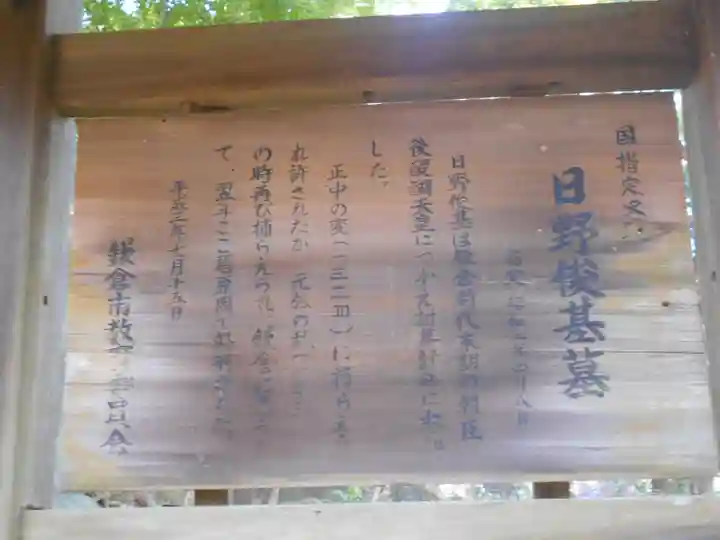 国指定史
日野俊基墓
指定 昭和 年四月八日
日野俊基は鎌倉時代末期の朝臣
後醍醐天皇につかえ討幕計画に
した。
正中の変(一三二四)に捕らえ
れ許されたが 元弘の
の時再び捕らえられ 鎌倉に
て 翌年ここ葛原岡で
平成三年七月十五日
鎌倉市教育委員会